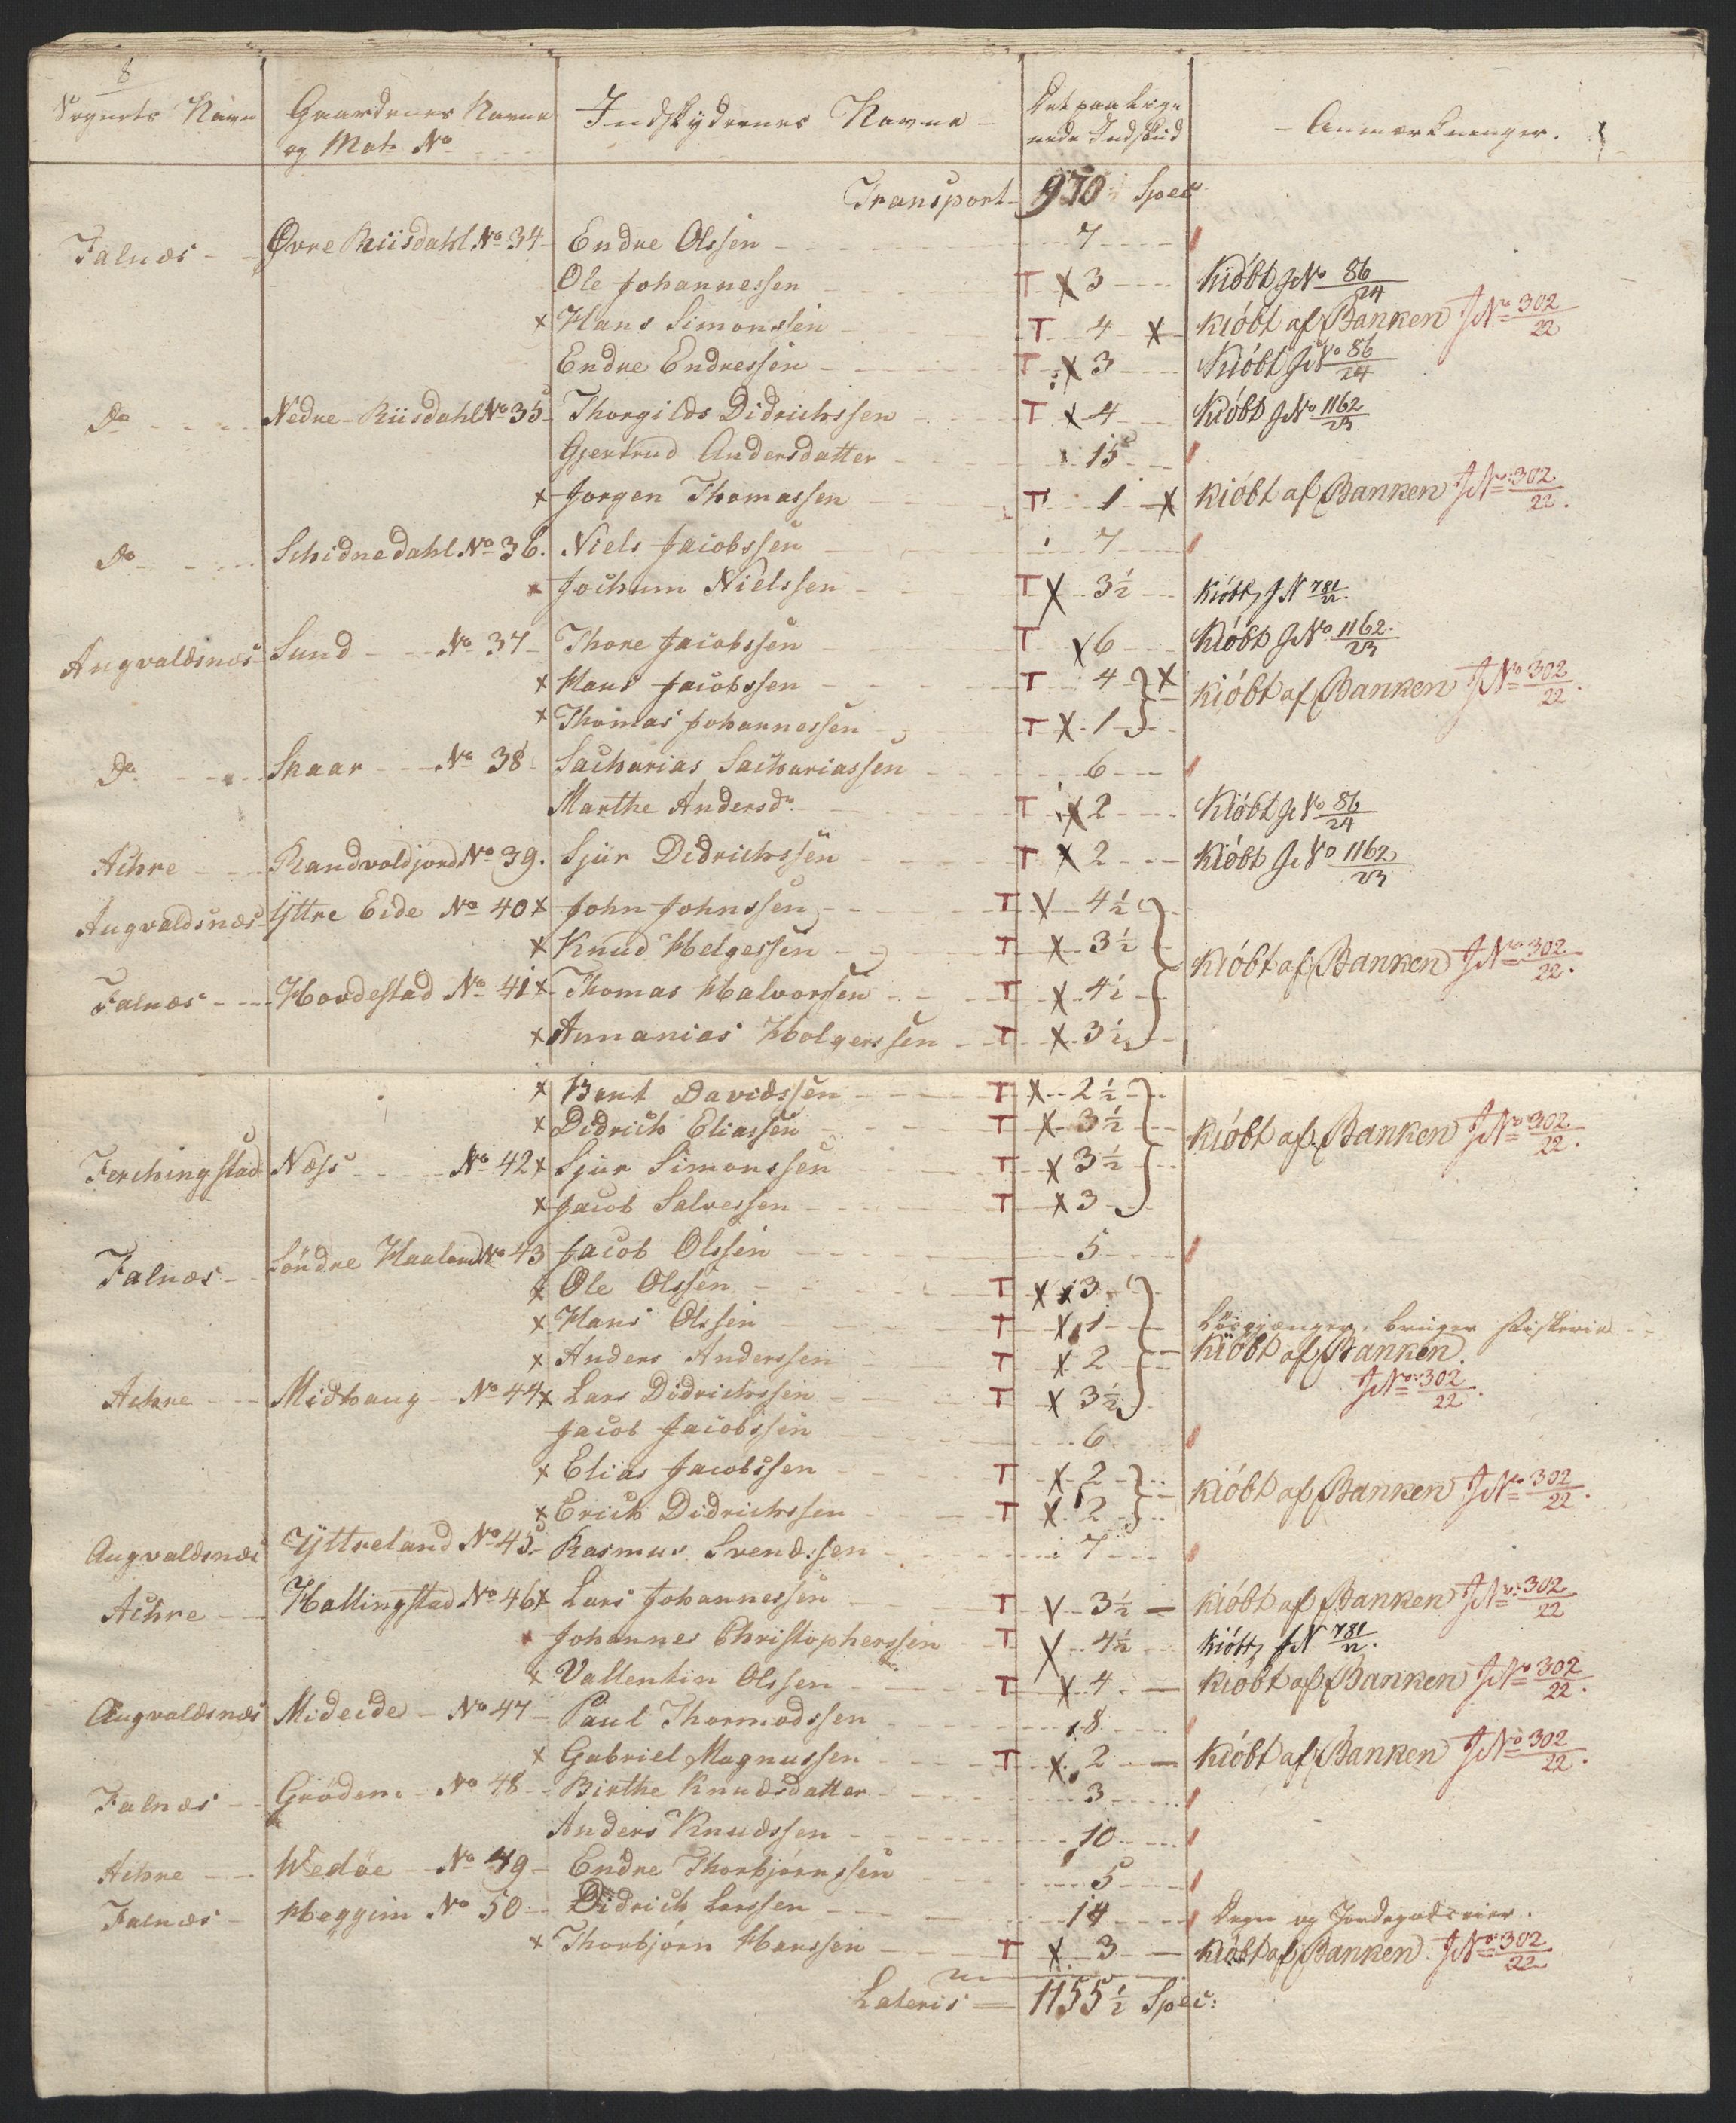 8
Sognets Navn Gaardenes Navne og Mat. No Indskydernes Navne Det paa lig= nede Indskud Anmærkninger.
Transport 970 Spec
Falnæs Øvre Riisdahl No 34 Endre Olssen 7
Ole Johannessen T x 3 Kiöbt JNo 86/24
x Hans Simonssen T 4 x kióbt af Banken JNo 302/22
Endre Endressen T x 3 Kióbt JNo 86/24
Do Nedre Riisdahl No 35 Thorgilds Didrichssen T x 4 Kióbt JNo 1162/23
Gjertrud Andersdatter 15
x Jorgen Thomassen T 1 x kióbt af Banken JNo 302/22.
Do Schidnedahl No 36. Niels Jacobssen 7
x Jochum Nielssen T x 3½ Kióbt JN 781/22.
Augvaldsnæs Sund No 37 Thore Jacobssen T x 6 Kióbt JNo 1162/23
x Hans Jacobssen T 4 x kióbt af Banken JNo 302/22.
x Thomas Johannessen T x 1
Do Skaar No 38 Sacharias Sachariassen 6
Marthe Andersdr. T x 2 Kióbt JNo 86/24
Achre Randvoldjord No 39. Sjur Didrichssen T x 2 Kióbt JNo 1162/23
Augvaldsnæs Yttre Eide No 40 x John Johnssen T x 4½
x Knud Helgessen T x 3½ kióbt af Banken JNo 302/22.
Falnæs Hovdestad No 41 x Thomas Halvorssen T x 4½
x Annanias Holgerssen T x 3½
x Bent Davidssen T x 2½
x Didrich Eliassen T x 3½ kióbt af Banken JNo 302/22.
Ferchingstad Næss No 42 x Sjur Simonssen T x 3½
x Jacob Salvessen T x 3
Falnæs Söndre Haaland No 43 Jacob Olssen 5
x Ole Olssen T x x 3
x Hans Olssen T x 1 Lösgjænger, bruger fiskerie
x Anders Anderssen T x 2 Kióbt af Banken.
Achre Midhaug No 44 x Lars Didrichssen T x 3½ JNo 302/22.
Jacob Jacobssen 6
x Elias Jacobssen T x 2 kióbt af Banken JNo 302/22.
x Erich Didrichssen T x 2
Augvaldsnæs Yttreland No 45. Rasmus Svendssen 7
Achre Hallingstad No 46 x Lars Johannessen T x 3½ kióbt af Banken JNo 302/22
x Johannes Christopherssen T x 4½ Kióbt JN 781/22.
x Vallentin Olssen T x 4 kióbt af Banken JNo 302/22.
Augvaldsnæs Mideide No 47 Paul Thormodssen 8
x Gabriel Magnussen T x 2 kióbt af Banken JNo 302/22.
Falnæs Grödem No 48 Birthe Knudsdatter 3
Anders Knudssen 10
Achre Wedöe No 49 Endre Thorbjörnssen 5
Falnæs Heggim No 50 Didrich Larssen 14 Degn og Jordegodseier.
x Thorbjörn Hanssen T x 3 kióbt af Banken JNo 302/22
Lateris 1155½ Spec: